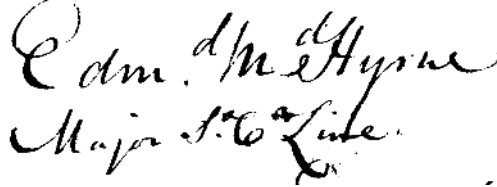 Edm.d M Hyrne
Major S.o Ca Line.